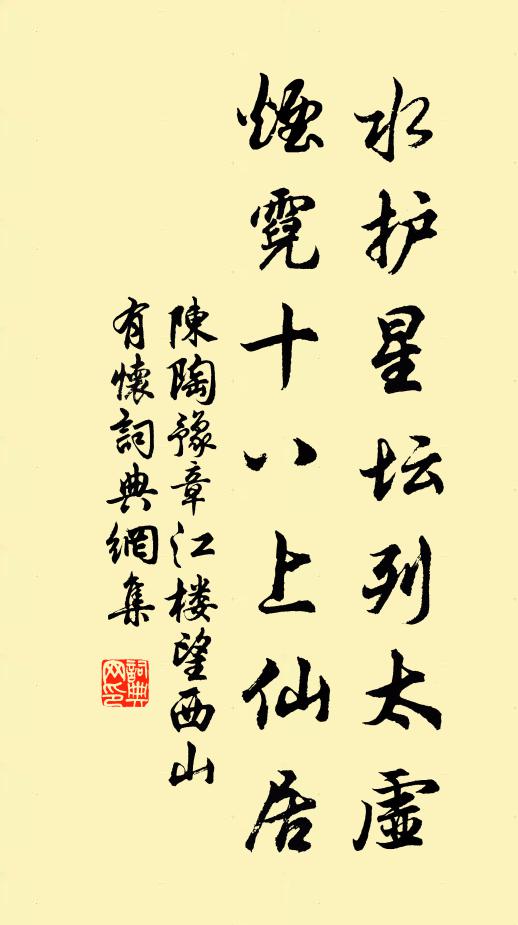 水护星坛列太虚
煙霓十八上仙居
陳陶豫章江楼望西山
有懷詞典網集
詞典网印